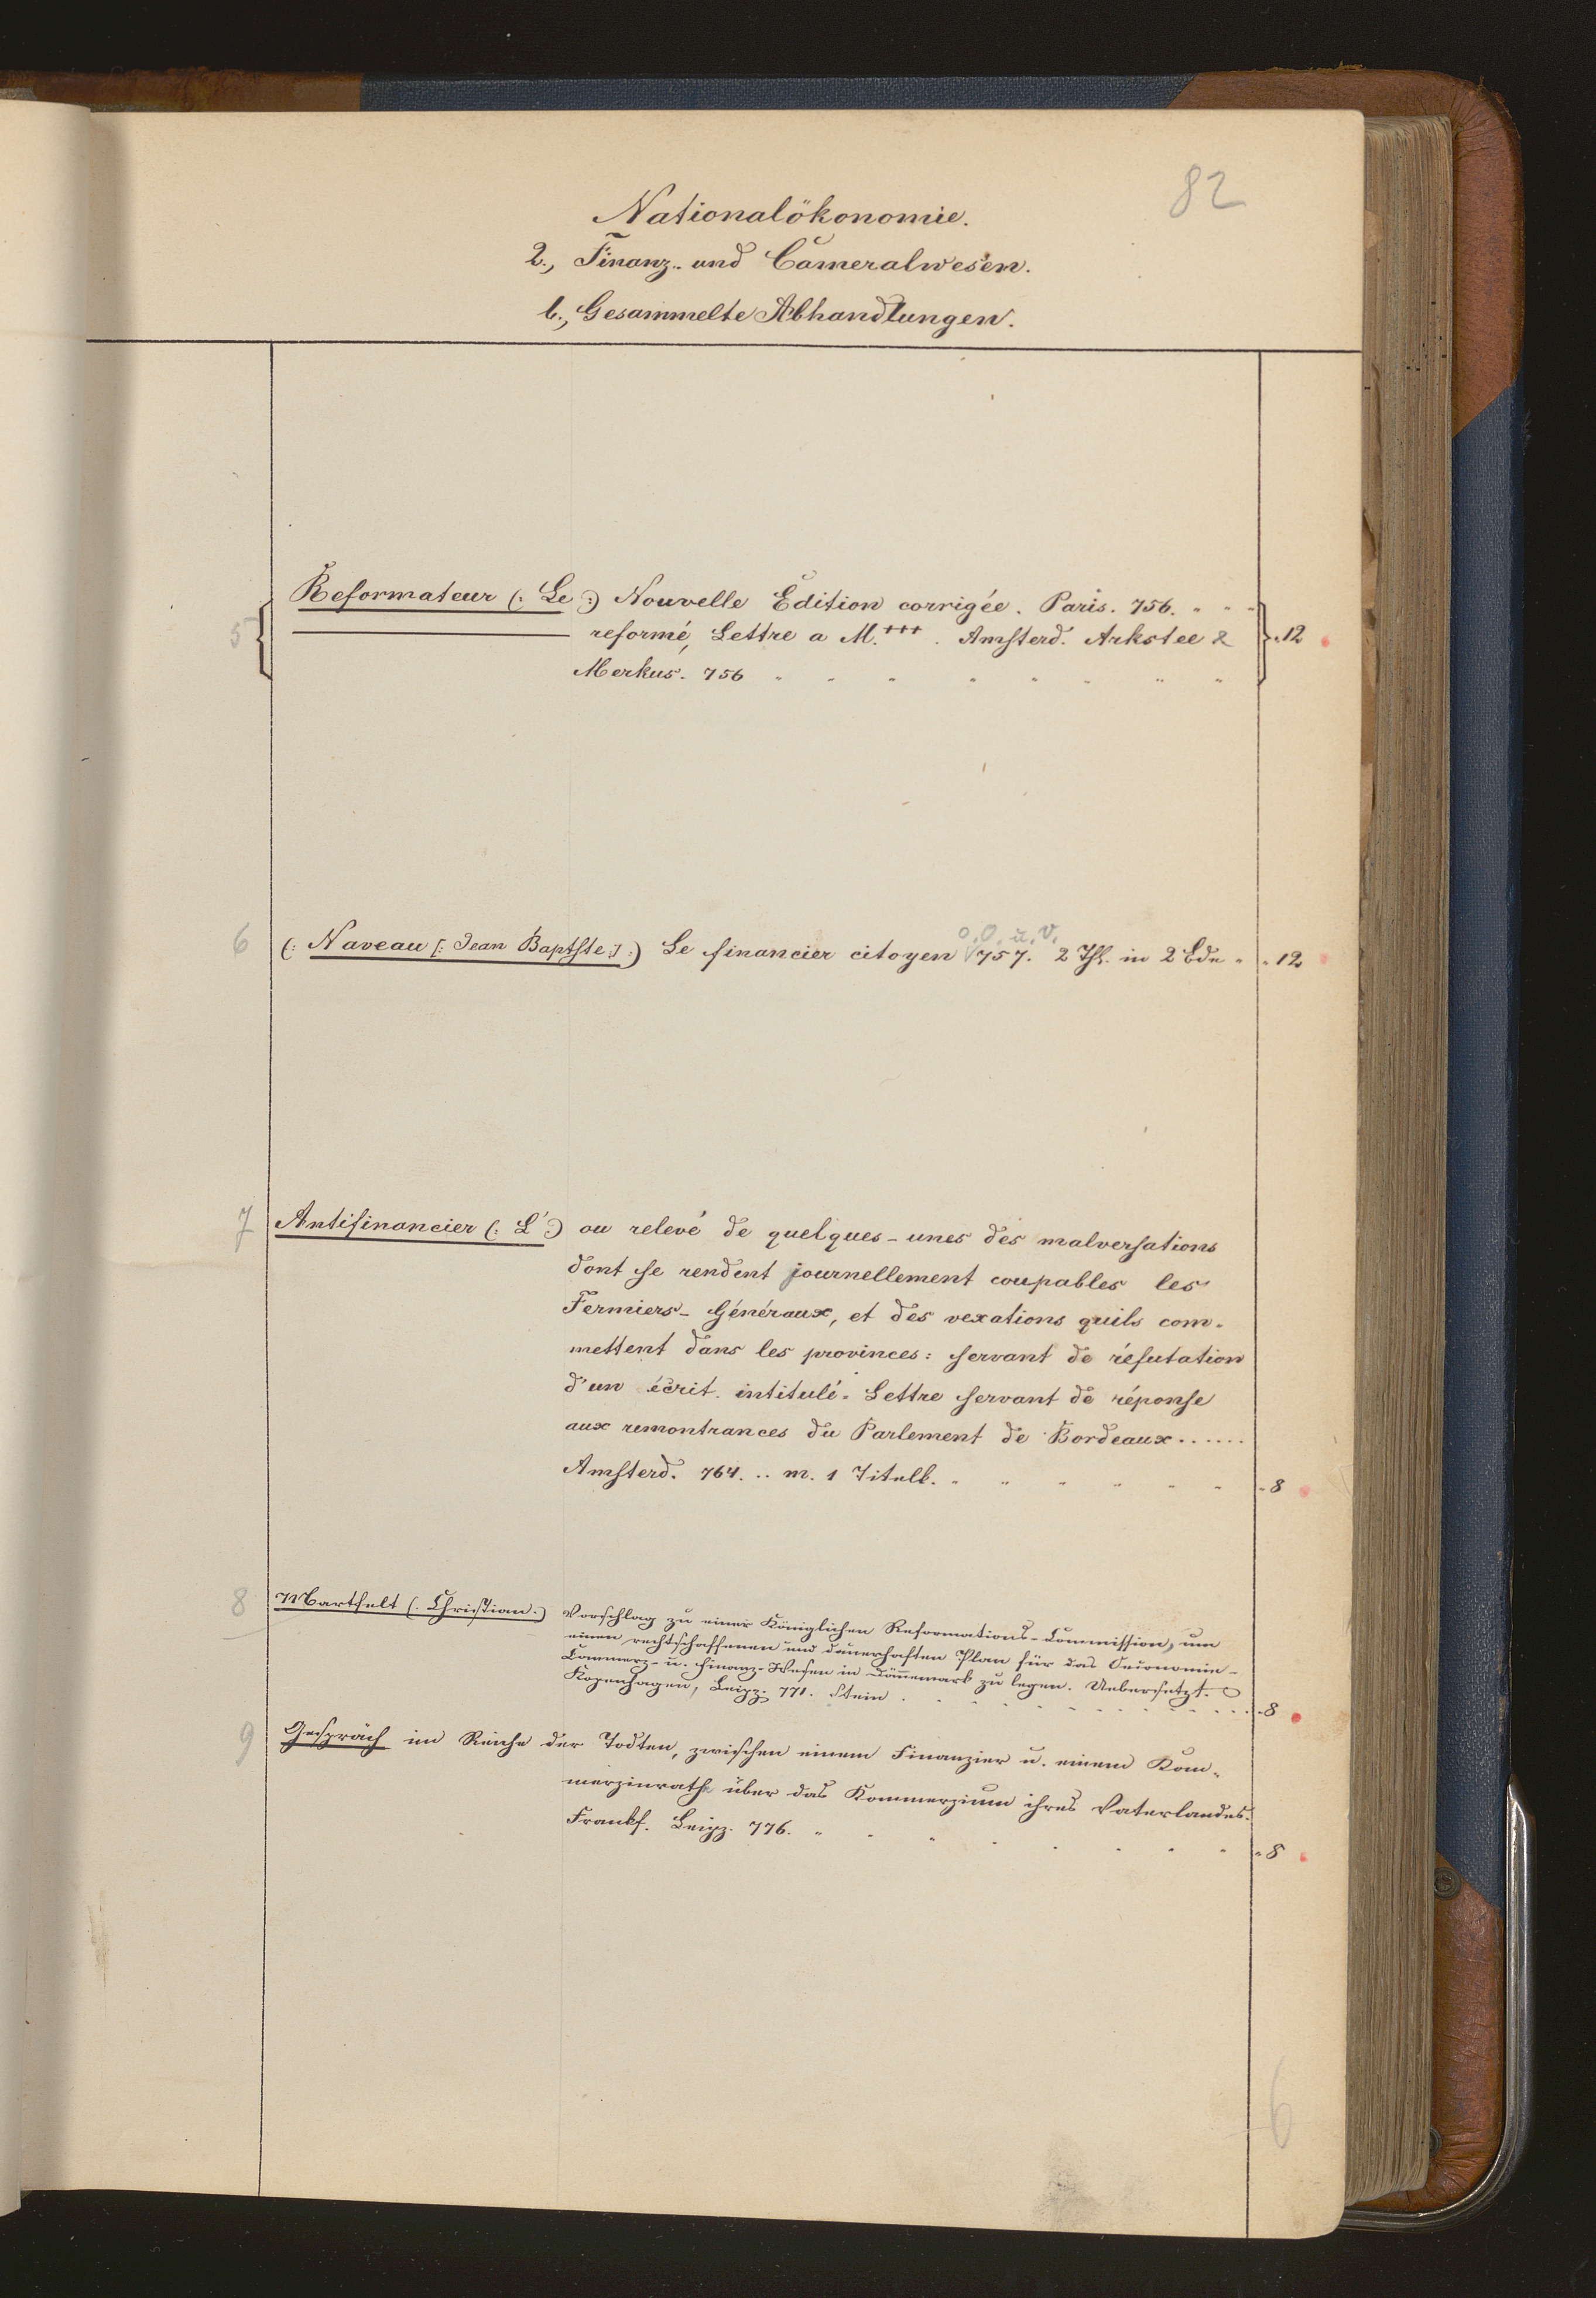 82
Nationalökonomie.
2., Finanz- und Cameralwesen.
b., Gesammelte Abhandlungen.
Reformateur (: Le :) Nouvelle Edition corrigée. Paris. 756. " " "
5 { reformé, Lettre a M.+++ . Amsterd. Arkstee & } "12
Merkus. 756 " " " " " " " "
o. O. u. V.
6 (: Naveau [: Jean Baptste :] :) Le financier citoyen 757. 2 Thl. in 2 Bdn " " 12
7 Antifinancier (: L' :) ou relevé de quelques-unes des malversations
dont se rendent journellement coupables les
Fermiers-Généraux, et des vexations quils com-
mettent dans les provinces: servant de réfutation
d'un écrit intitulé. Lettre servant de réponse
aux remontrances du Parlement de Bordeaux......
Amsterd. 764. .. m. 1 Titelk. " " " " " " " 8
8 Martfelt (: Christian :) Vorschlag zu einer Königlichen Reformations-Commission, um
einen rechtschaffenen und dauerhaften Plan für das Oeconomie-
Commerz- u. Finanz-Wesen in Dännemark zu legen. Uebersetzt.
Kopenhagen, Leipz. 771. Stein . . . . . . . . . . . "8
9 Gespräch im Reiche der Todten, zwischen einem Finanzier u. einem Kom-
merzienrathe über das Kommerzium ihres Vaterlandes.
Frankf. Leipz. 776. " " " " " " " " 8
6